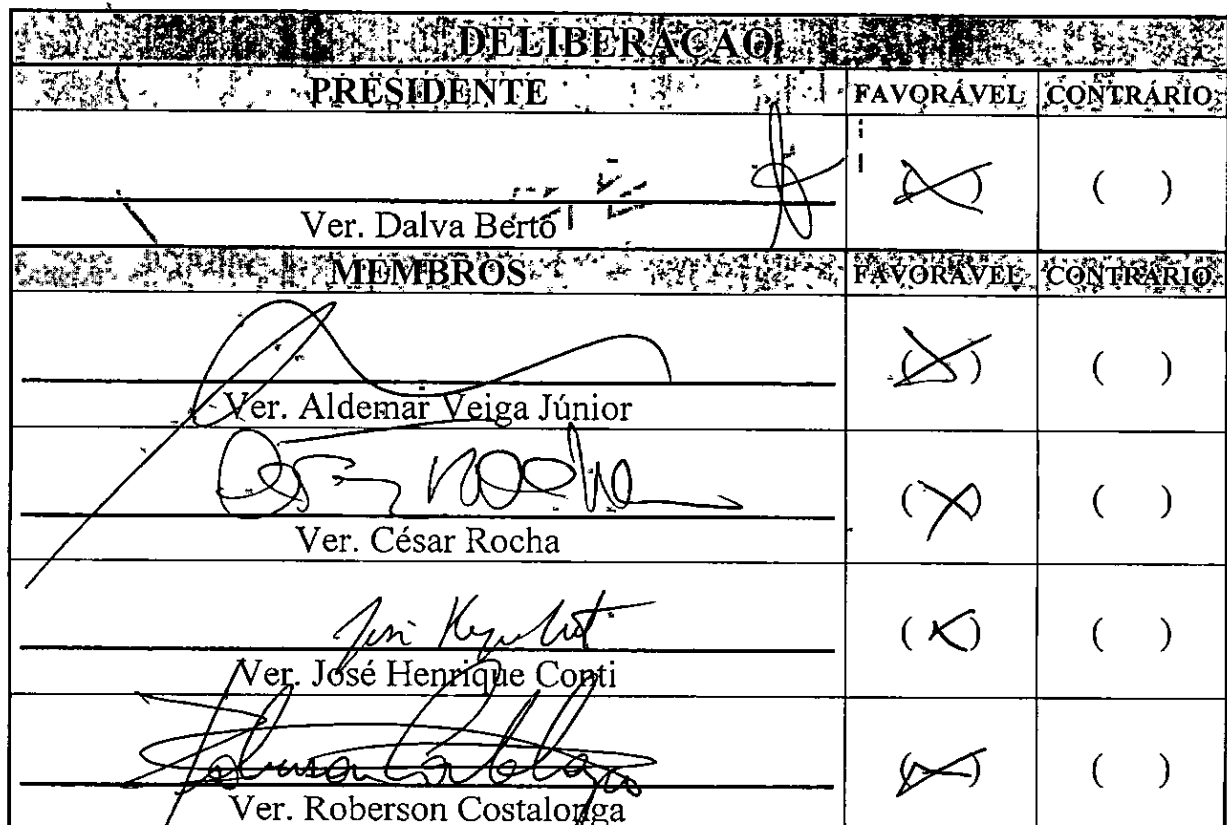 DELIBERAÇÃO
PRESIDENTE FAVORÁVEL CONTRÁRIO
(X) ( )
Ver. Dalva Berto
MEMBROS FAVORÁVEL CONTRÁRIO
(X) ( )
Ver. Aldemar Veiga Júnior
(X) ( )
Ver. César Rocha
(X) ( )
Ver. José Henrique Conti
(X) ( )
Ver. Roberson Costalonga